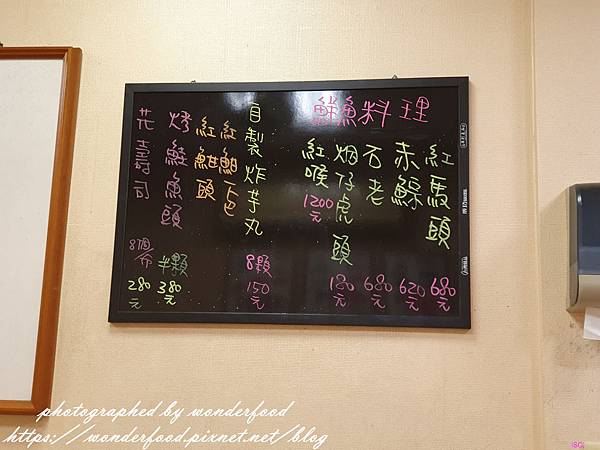 鮮魚料理
紅馬頭 680元
赤鯮 620元
石老 680元
烟仔虎頭 180元
紅喉 1200元
自製炸芋丸 8顆 150元
紅魽下巴
紅魽頭
烤鮭魚頭 半顆 380元
花壽司 8個 280元
photographed by wonderfood
https://wonderfood.pixnet.net/blog